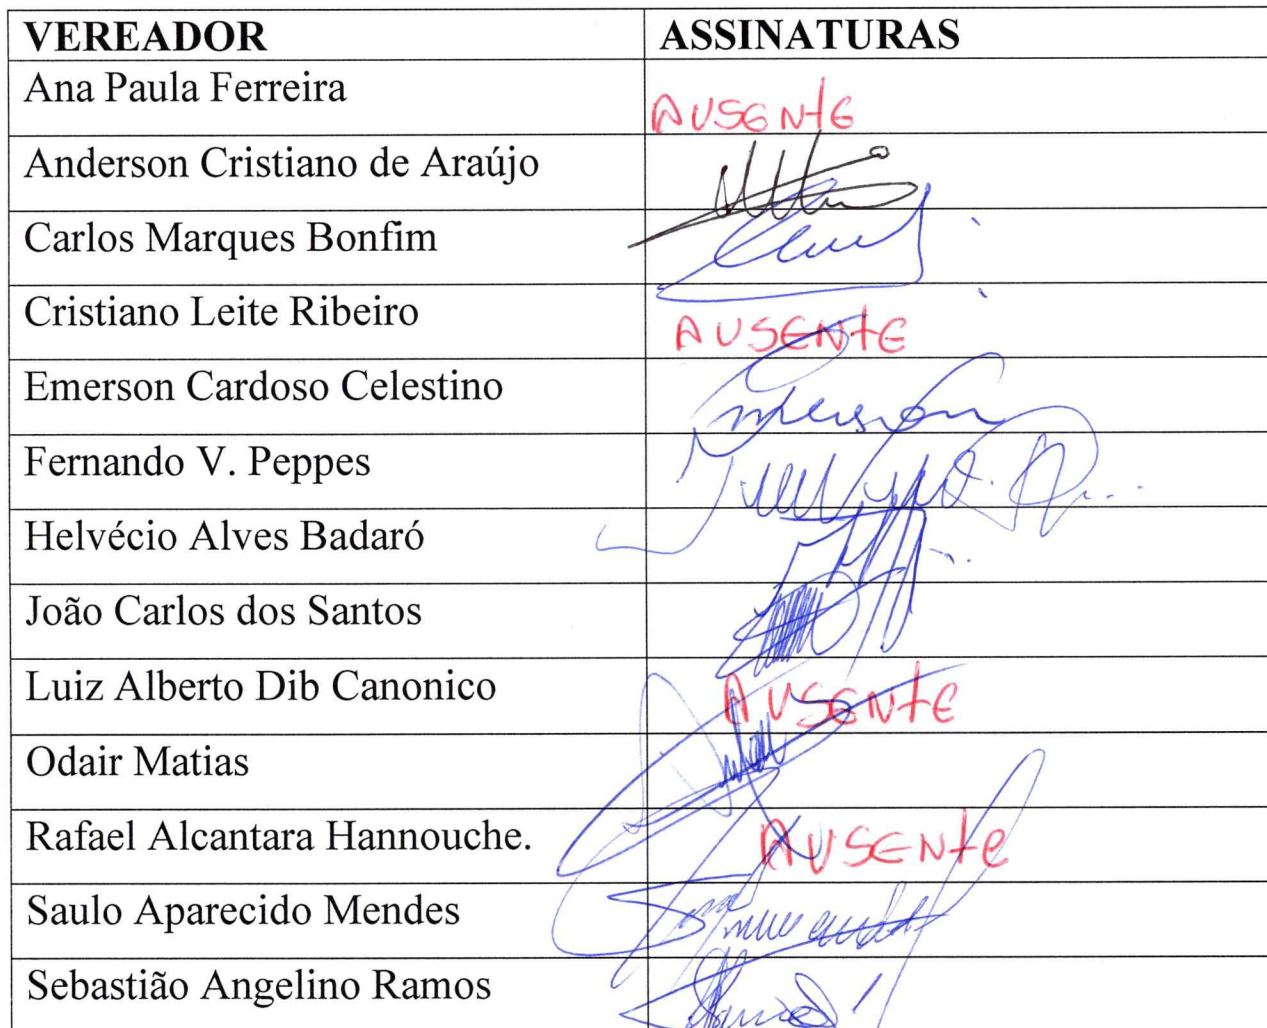 VEREADOR ASSINATURAS
Ana Paula Ferreira AUSENTE
Anderson Cristiano de Araújo
Carlos Marques Bonfim
Cristiano Leite Ribeiro AUSENTE
Emerson Cardoso Celestino
Fernando V. Peppes
Helvécio Alves Badaró
João Carlos dos Santos
Luiz Alberto Dib Canonico AUSENTE
Odair Matias
Rafael Alcantara Hannouche. AUSENTE
Saulo Aparecido Mendes
Sebastião Angelino Ramos